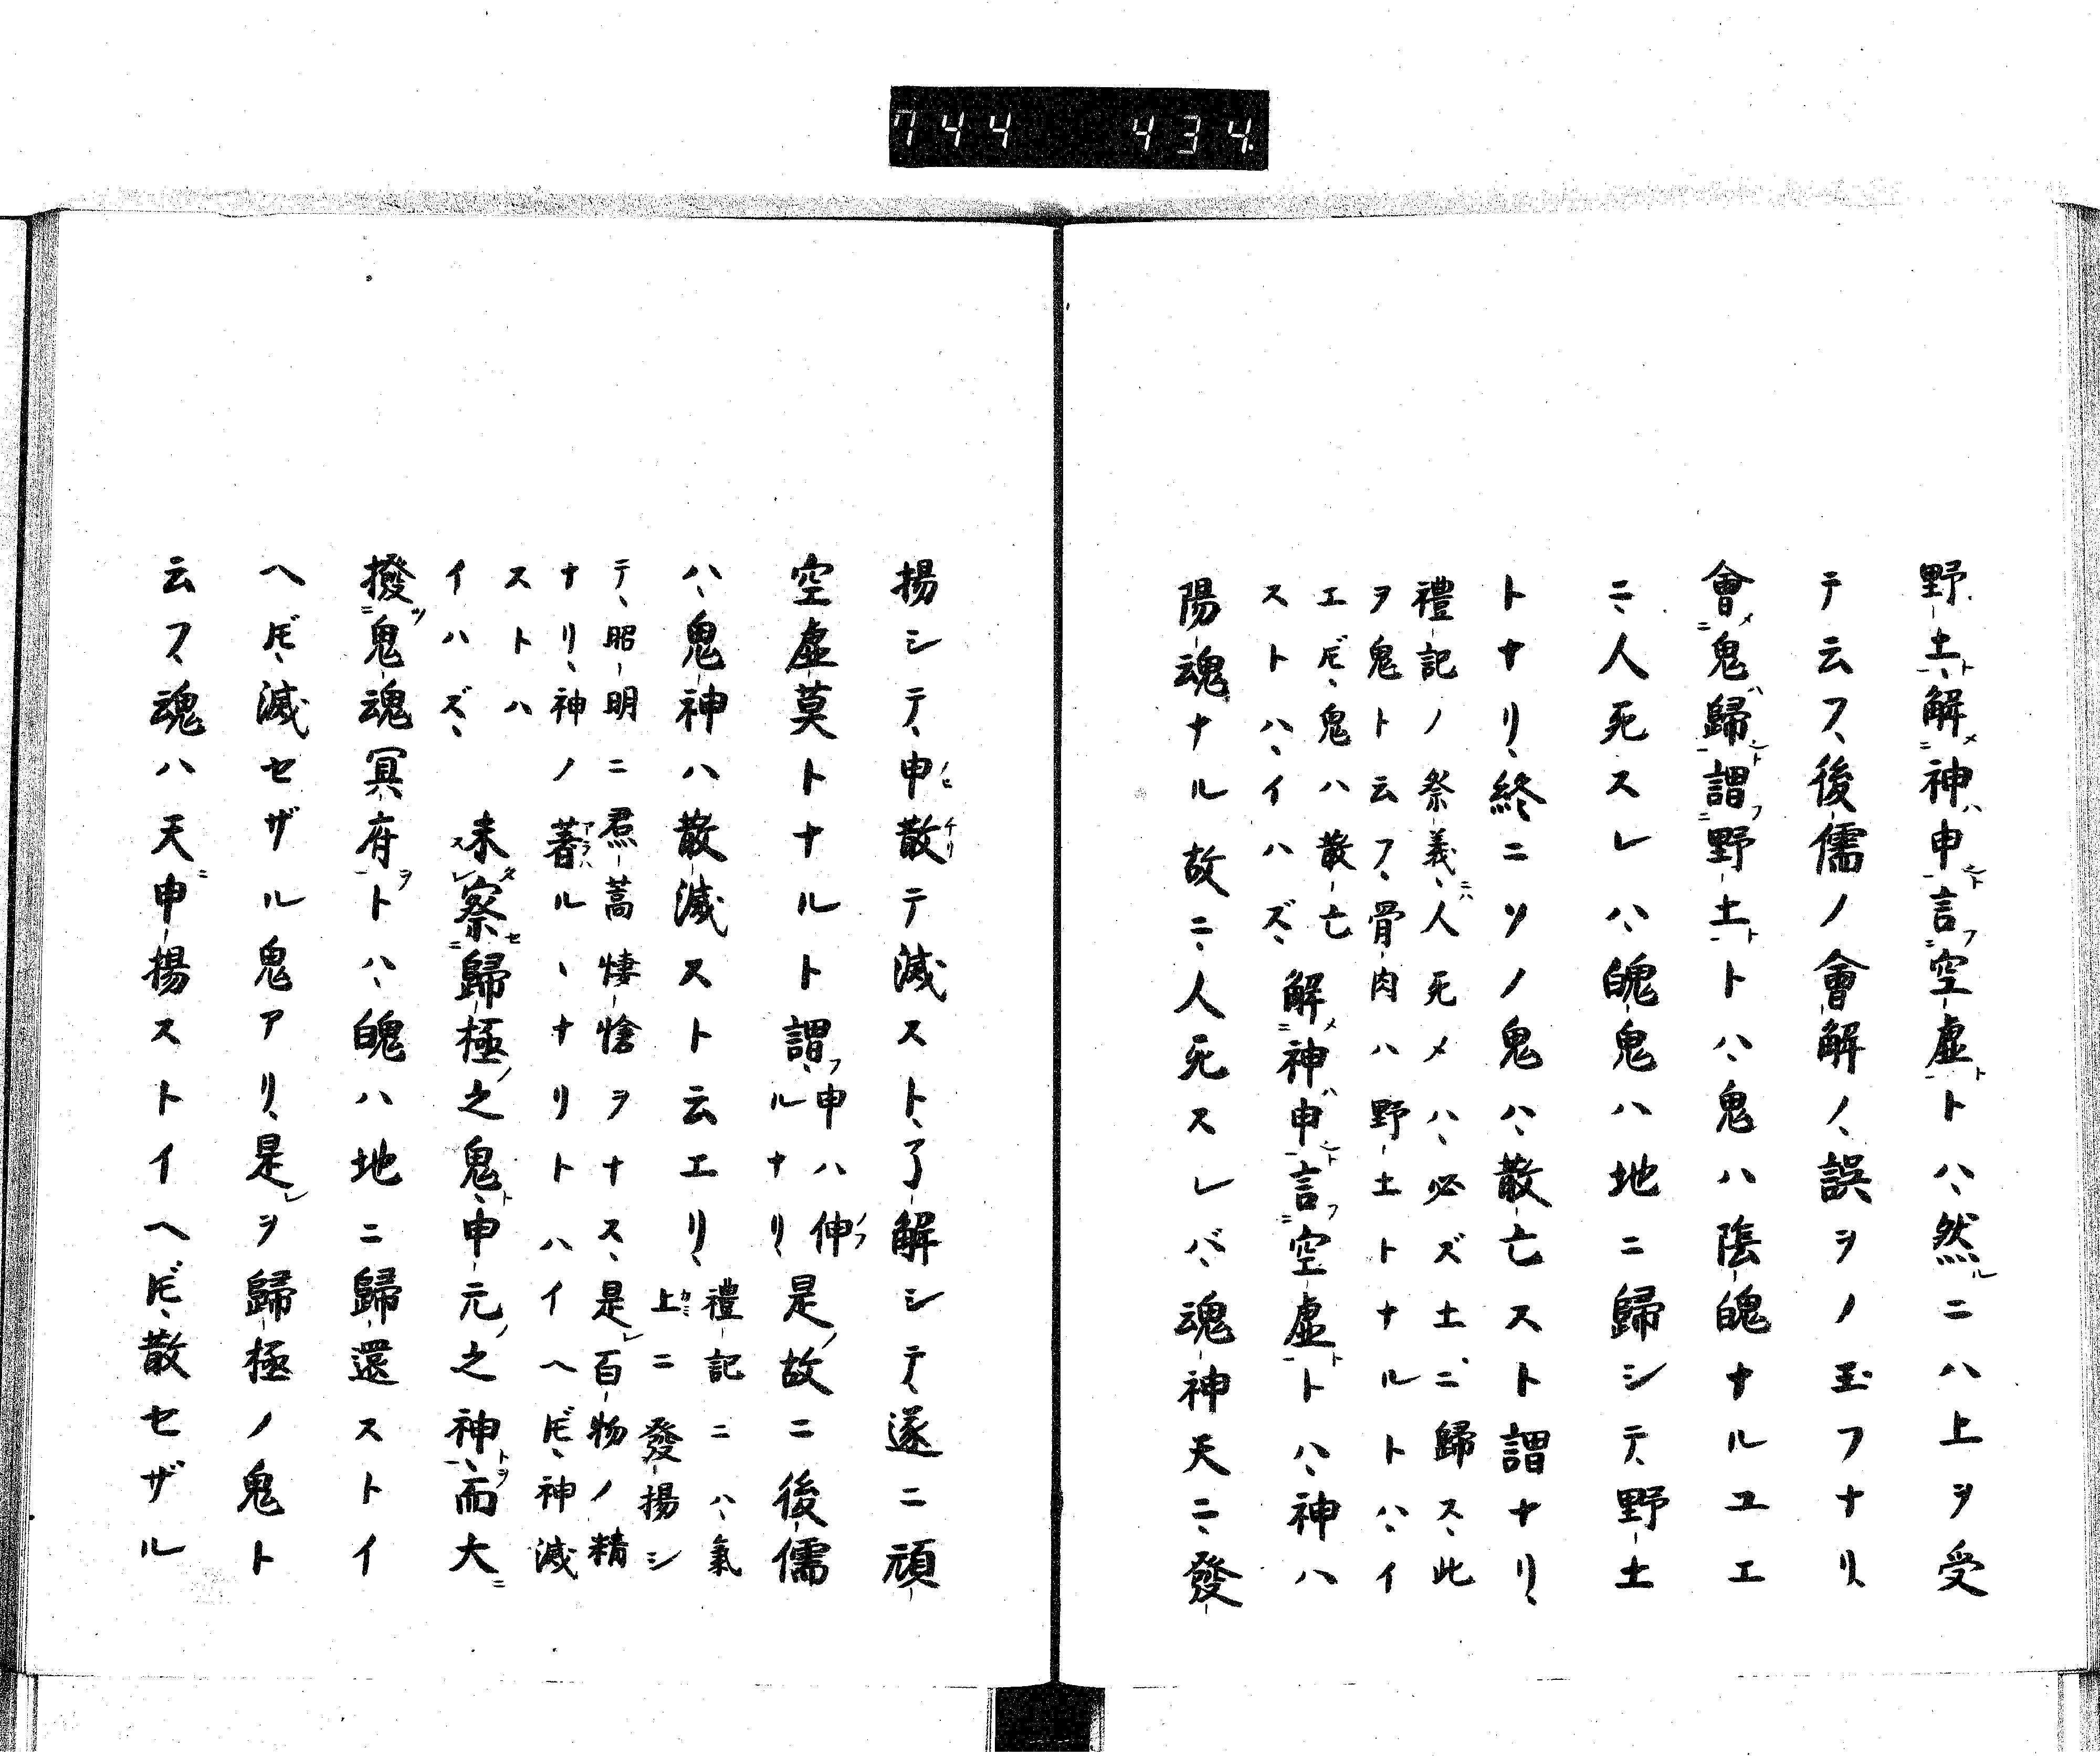 744 434
野土解神申言空虚トハ、然ニハ上ヲ受
テ云フ、後儒ノ會解ノ、誤ヲノ玉フナリ、
會鬼歸謂野土トハ、鬼ハ陰魄ナルユエ
ニ、人死スレハ、魄鬼ハ地ニ歸シテ、野土
トナリ、終ニソノ鬼ハ、散亡スト謂ヤリ、
禮記ノ祭義、人死メハ、必ズ土ニ歸ス、此
ヲ鬼ト云フ、骨肉ハ野土トナルトハ、イ
エ𪜈、鬼ハ散亡
ストハ、イハズ、 解神申言空虚トハ、神ハ
陽魂ナル故ニ、人死スレバ、魂神天ニ、發
揚シテ、申散テ滅スト、了解シテ、遂ニ頑
空虚莫トナルト謂、申ハ伸
ルナリ 是故ニ後儒
ハ、鬼神ハ散滅スト云エリ、 禮記ニハ、氣
上ニ發揚シ
テ、昭明ニ焄蒿悽愴ヲナス、是百物ノ精
ナリ、神ノ著ル、ナリトハイヘ𪜈、神滅
ストハ
イハズ、 未察歸極之鬼、申元之神、而大
撥鬼魂冥府トハ、魄ハ地ニ歸還ストイ
ヘ𪜈、滅セザル鬼アリ、是ヲ歸極ノ鬼ト
云フ、魂ハ天申揚ストイヘ𪜈、散セザル